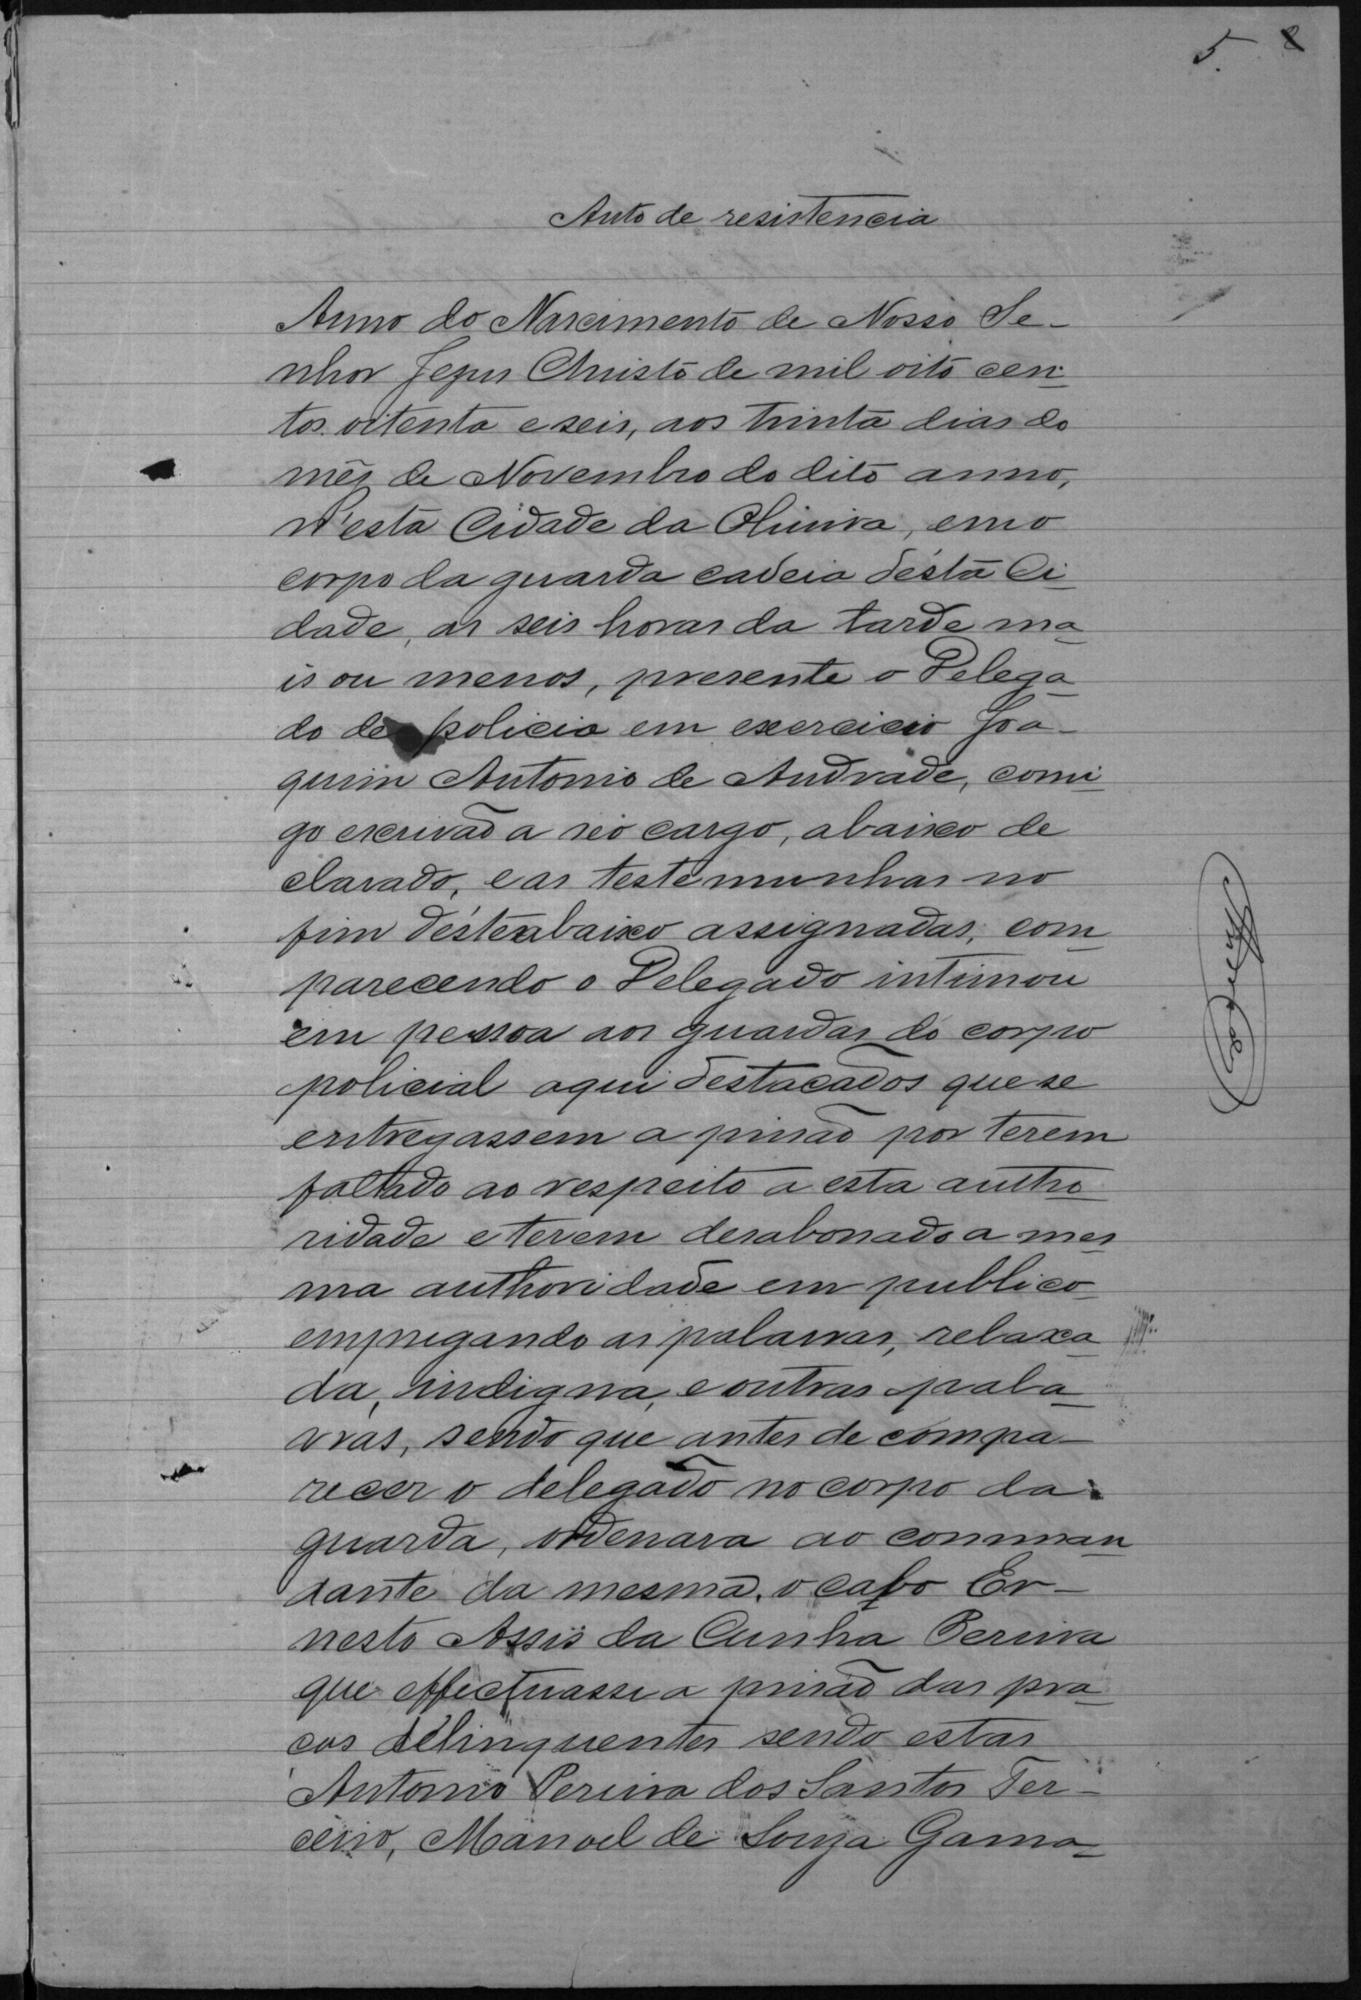 5.
Auto de resistencia
Anno do Nascimento de Nosso Se-
nhor Jezus Christo de mil oito cen-
tos oitenta e seis, aos trinta dias do
mês de Novembro do dito anno,
n'esta Cidade da Oliveira, em o
corpo da guarda cadeia désta Ci
dade, as seis horas da tarde ma
is ou menos, presente o Delega
do de policia em exercicio Joa-
quim Antonio de Andrade, comi
go escrivão a seo cargo, abaixo de
clarado, e as testemunhas no
fim déste abaixo assignadas, com
parecendo o Delegado intimou
em pessoa aos guardas do corpo
policial aqui destacados que se
entregassem a prisão por terem
faltado ao respeito a esta autho
ridade e terem desabonado a mes
ma authoridade em publico
empregando as palavras, relaxa
da, indigna, e outras pala-
vras, sendo que antes de compa-
recer o delegado no corpo da
guarda, ordenara ao comman
dante da mesma, o cabo Er-
nesto Assis da Cunha Pereira
que effectuasse a prisão das pra
cas delinquentes sendo estas
Antonio Pereira dos Santos Ter-
ceiro, Manoel de Souza Gama